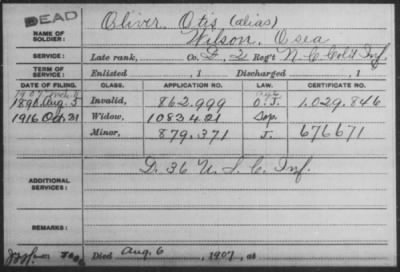 DEAD
NAME OF SOLDIER: Oliver, Otis (alias)
Wilson, Osea
SERVICE: Late rank, Co. D. 2 Reg't N.C. Col'd Inf
TERM OF SERVICE: Enlisted , 1 Discharged , 1
DATE OF FILING. CLASS. APPLICATION NO. LAW. CERTIFICATE NO.
1907
1890 Aug. 5 Invalid, 862.999 O.J. 1,029.846
1916 Oct. 31 Widow, 1083421 Sep.
Minor, 879.371 J. 676671
ADDITIONAL SERVICES: D. 36 U.S.C. Inf.
REMARKS:
Died Aug. 6, 1907, at